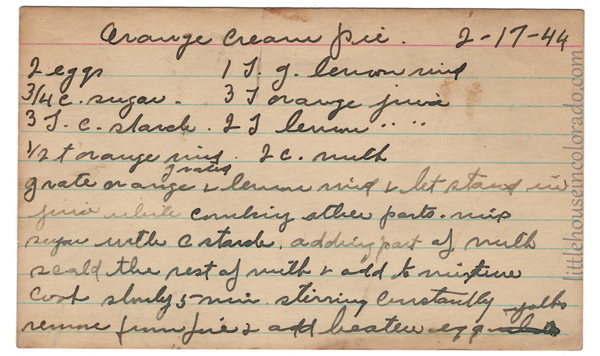 Orange Cream Pie. 2-17-44
2 eggs 1 T. g. lemon rind
3/4 c. sugar. 3 T orange juice
3 T. c. starch. 2 T lemon " "
1/2 t orange rind grated 2 c. milk
grate orange & lemon rind & let stand in
juice while combing other parts. mix
sugar with c starch. adding part of milk
scald the rest of milk & add to mixture
cook slowly 5 min. stirring constantly
remove from fire & add beaten egg yolks
littlehouseincolorado.com